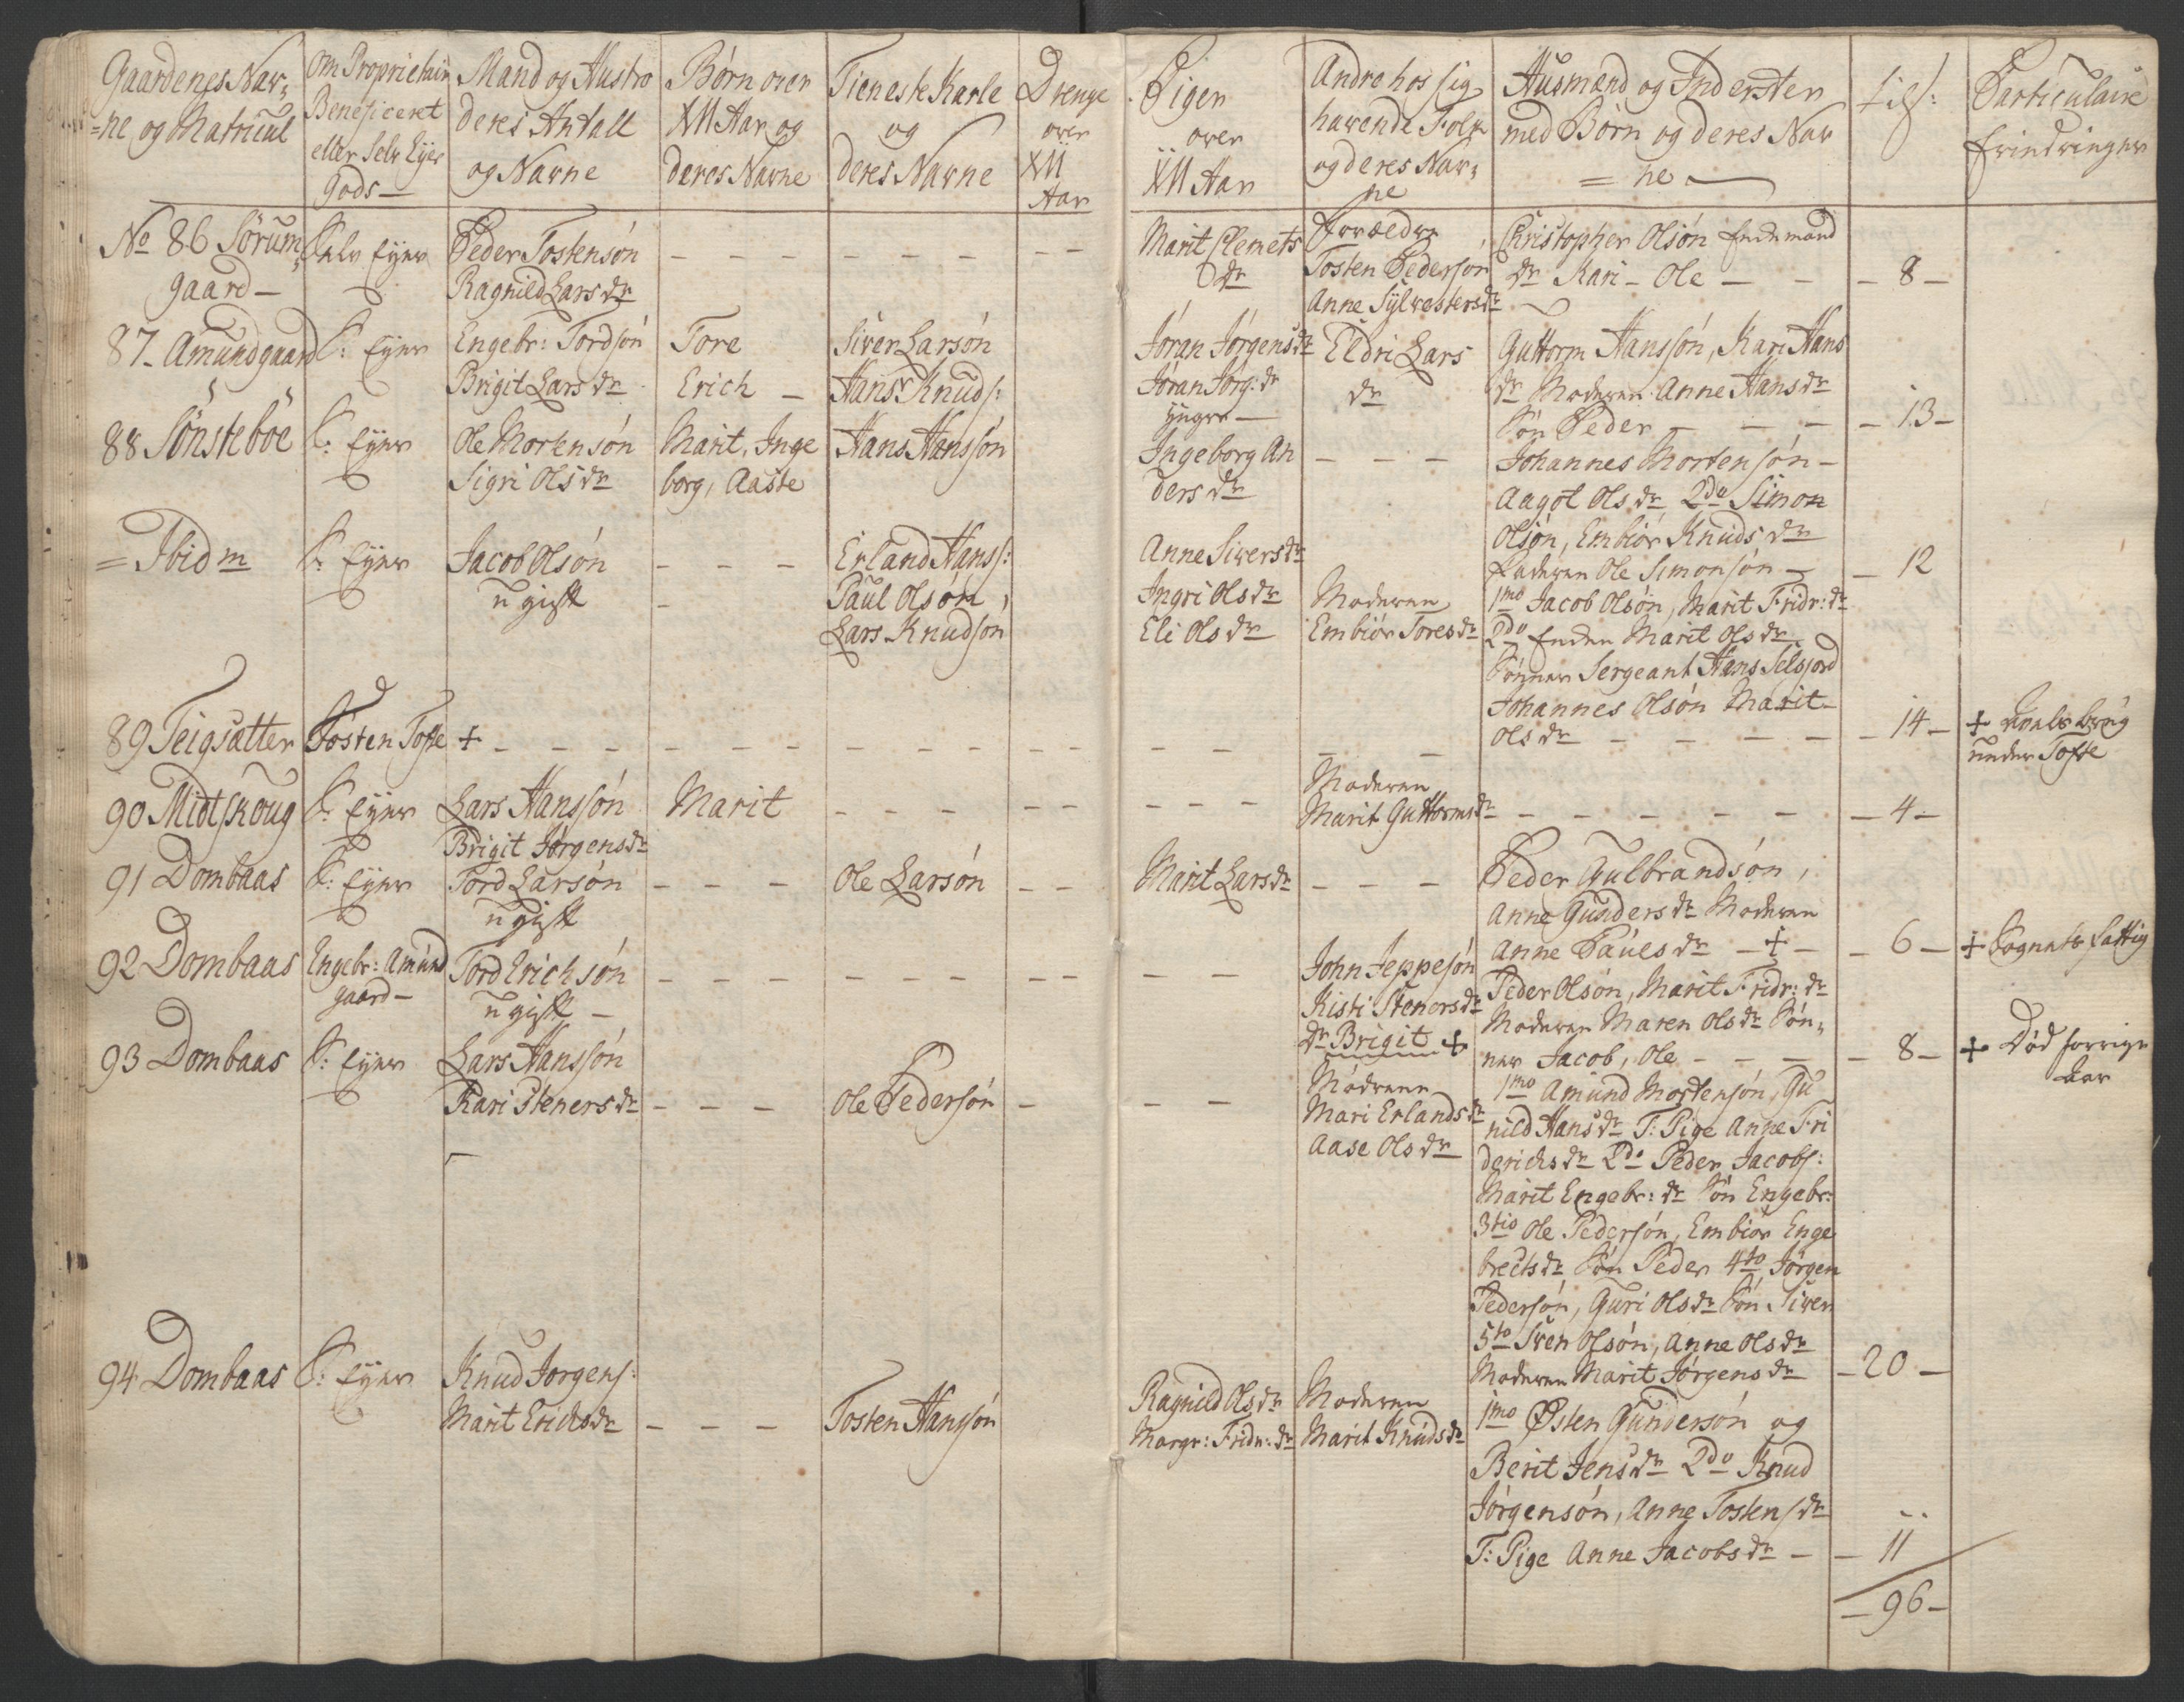 Gaardenes Nav-
=ne og Matricul
Om Proprietair
Beneficeret
eller Selv Eyer
Gods —
Mand og Hustro
deres Antall
og Navne
Børn over
XII Aar og
deres Navne
Tieneste Karle
og
deres Navne
Drenge
over
XII
Aar
Piger
over
XII Aar
Andre hos sig
havende Folk
og deres Nav-
ne
Husmænd og Inderster
med Børn og deres Nav
= ne —
tils:
Particulaire
Erindringer
No 86 Sørum-
gaard —
Selv Eyer
Peder Tostensøn
Ragnild Lars dr
Marit Clemets
dr
Forældre
Tosten Pedersøn
Anne Sylvesters dr
Christopher Olsøn Enkemand
dr Kari - Ole — -
- 8 -
87 - Amundgaard
S: Eyer
Engebr: Tordsøn
Brigit Lars dr
Tore
Erich -
Siver Larsøn
Hans Knuds:
Jøran Jørgens dr
Jøran Jørg: dr
yngre —
Eldri Lars
dr
Guttorm Hanssøn, Kari Hans
dr Moderen Anne Hans dr
Søn Peder - - -
- 13 -
88 Sønstebøe
S: Eyer
Ole Mortensøn
Sigri Ols dr
Marit, Inge
borg, Aaste
Hans Hanssøn
Ingeborg An
ders dr
- - -
Johannes Mortensøn -
Aagot Ols dr 2do Simon
Olsøn, Embiør Knuds dr
Faderen Ole Simonsøn -
- 12
= Ibidm
S: Eyer
Jacob Olsøn
ugift
- - -
Erland Hanss:
Paul Olsøn,
Lars Knudsøn
Anne Sivers dr
Ingri Ols dr
Eli Ols dr
Moderen
Embiør Tores dr
1mo Jacob Olsøn, Marit Fridr: dr
2do Enken Marit Ols dr
Sønner Sergeant Hans Selsjord
Johannes Olsøn Marit
Ols dr - - - -
- 14 -
89 Teigsætter
Tosten Tofte
+ - - -
+ Avels brug
under Tofte
90 Midtskoug
S: Eyer
Lars Hanssøn
Brigit Jørgens dr
Marit
- - -
Moderen
Marit Guttorms dr
- - - - - -
- 4 -
91 Dombaas
S: Eyer
Tord Larsøn
ugift
- - -
Ole Larsøn
- -
Marit Lars dr
- - -
Peder Gulbrandsøn,
Anne Gunders dr Moderen
Anne Paules dr - + -
- 6 -
+ Sognets fattig
92 Dombaas
Engebr: Amund
gaard -
Tord Erichsøn
ugift -
- - -
John Jeppesøn
Kisti Steners dr
dr Brigit +
Peder Olsøn, Marit Fridr: dr
Moderen Maren Ols dr Søn-
ner Jacob, Ole - - -
- 8 -
+ Død forrige
Aar
93 Dombaas
S: Eyer
Lars Hanssøn
Kari Steners dr
- - -
Ole Pedersøn
-
- -
Mødrene
Mari Erlands dr
Aase Ols dr
1mo Amund Mortensøn, Gu
nild Hans dr T: Pige Anne Fri
derichs dr 2do Peder Jacobs:
Marit Engebr: dr Søn Engebr:
3tio Ole Pedersøn, Embiør Enge
brects dr Søn Peder 4to Jørgen
Pedersøn, Guri Ols dr Søn Siver
5to Sven Olsøn, Anne Ols dr
Moderen Marit Jørgens dr
- 20 -
94 Dombaas
S: Eyer
Knud Jørgens:
Marit Erichs dr
- - -
Tosten Hanssøn
Ragnild Ols dr
Margr: Fridr: dr
Moderen
Marit Knuds dr
1mo Østen Gundersøn og
Berit Jens dr 2do Knud
Jørgensøn, Anne Tostens dr
T: Pige Anne Jacobs dr -
- 11
- 96 -